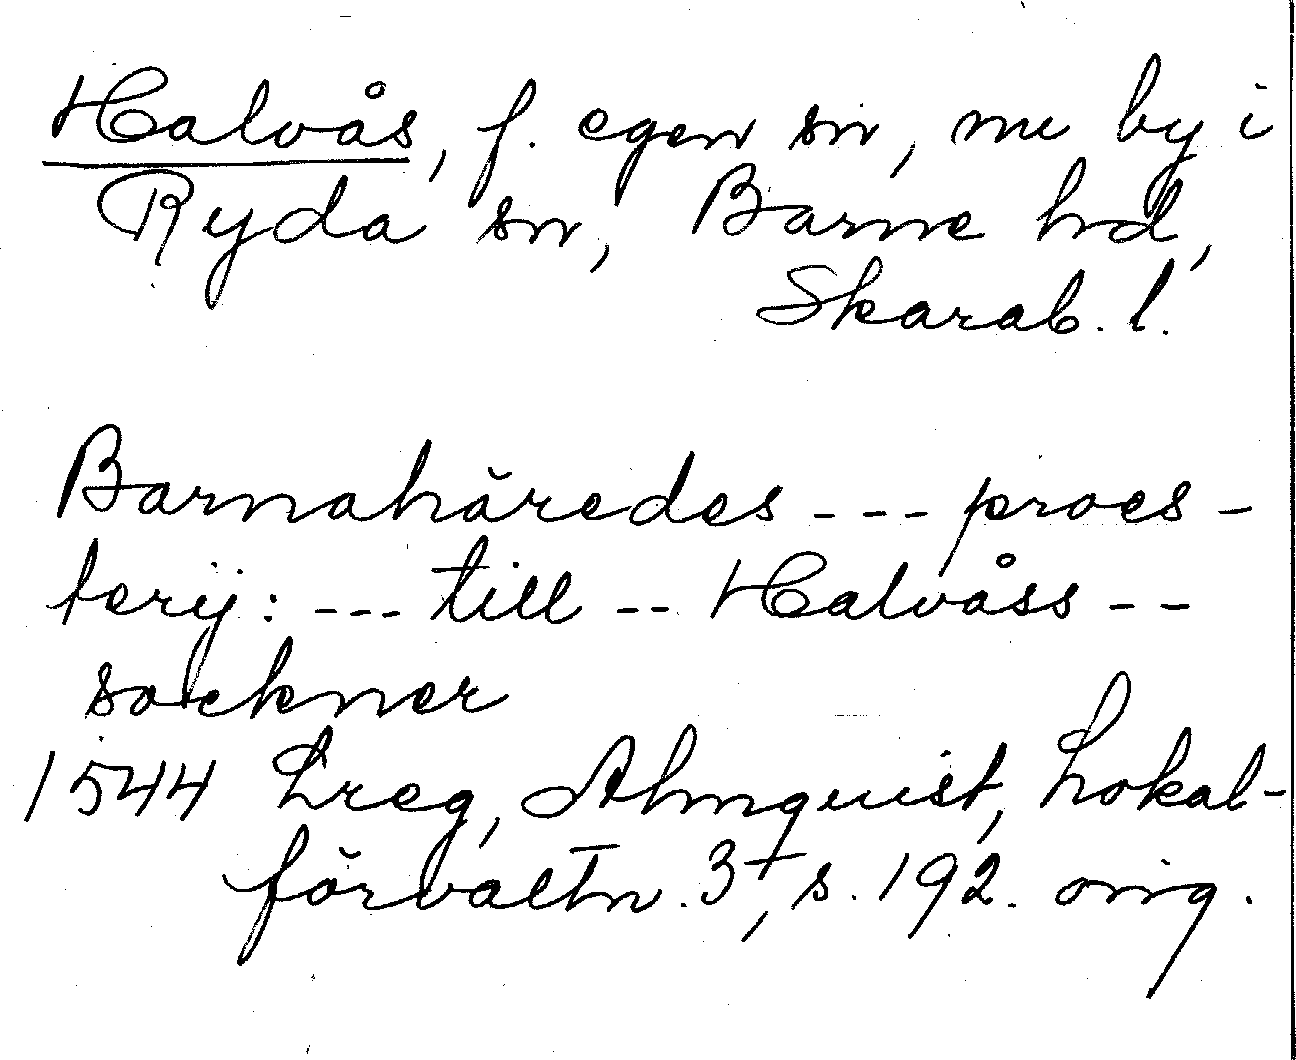 Halvås, f. egen sn, nu by i
Ryda sn, Barne hd,
Skarab. l.
Barnahäredes --- proes-
terij: --- till -- Halvåss --
sockner
1544 Lreg, Almquist, Lokal-
förvaltn. 3+, s. 192. orig.